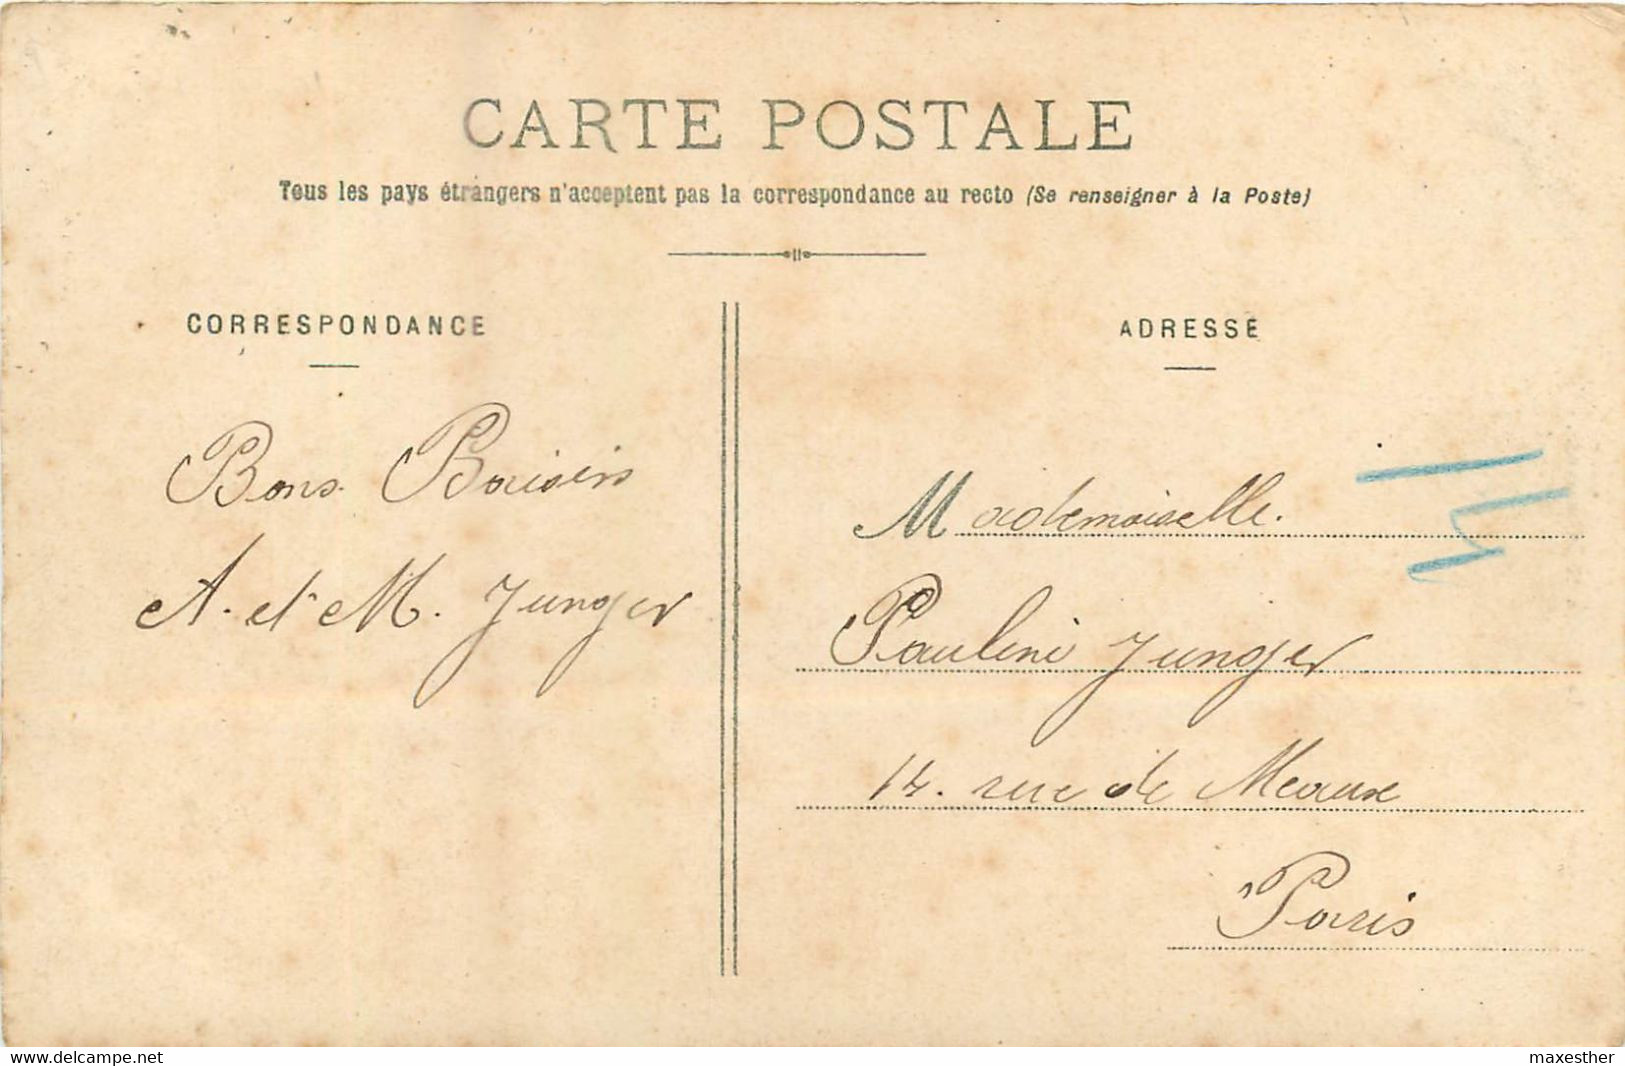 CARTE POSTALE
Tous les pays étrangers n'acceptent pas la correspondance au recto (Se renseigner à la Poste)
CORRESPONDANCE
Bons Baisers
A. et M. Junger
ADRESSE
Mademoiselle.
Pauline Junger
14. rue de Meaux
Paris
www.delcampe.net
maxesther